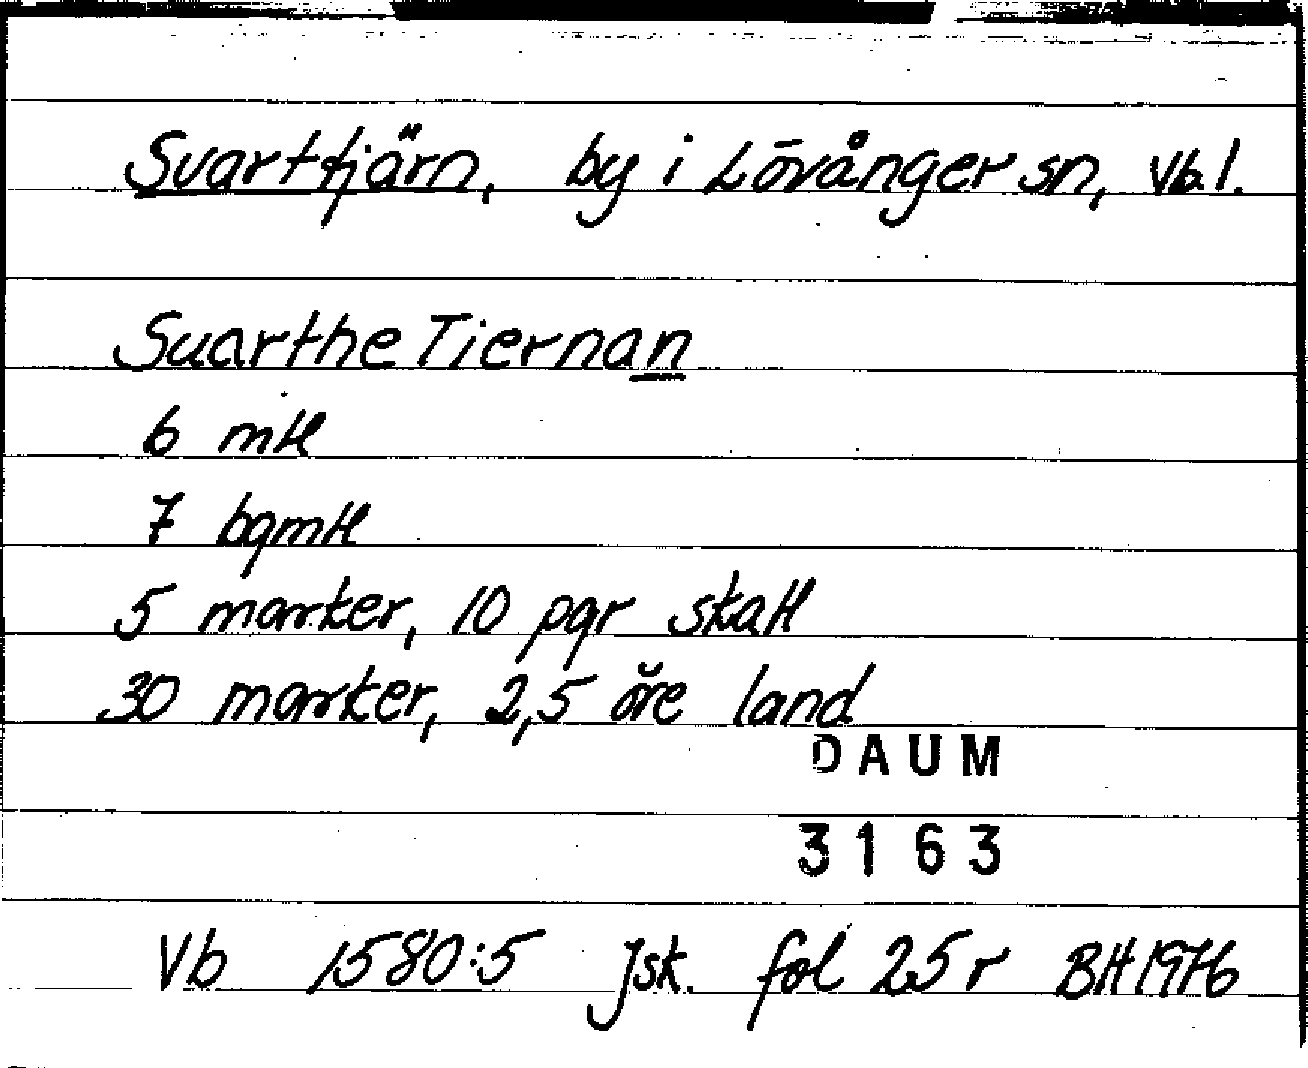 Svarttjärn, by i Lövånger sn, Vb. l.
Suarthe Tiernan
6 mtl
7 bgmtl
5 marker, 10 pgr skatt
30 marker, 2,5 öre land
DAUM
3163
Vb 1580:5 Jsk. fol 25 r BH 1976